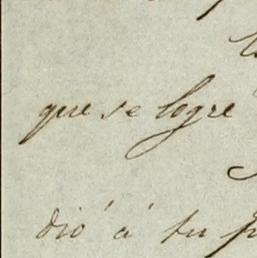 que se logre
dió á tu